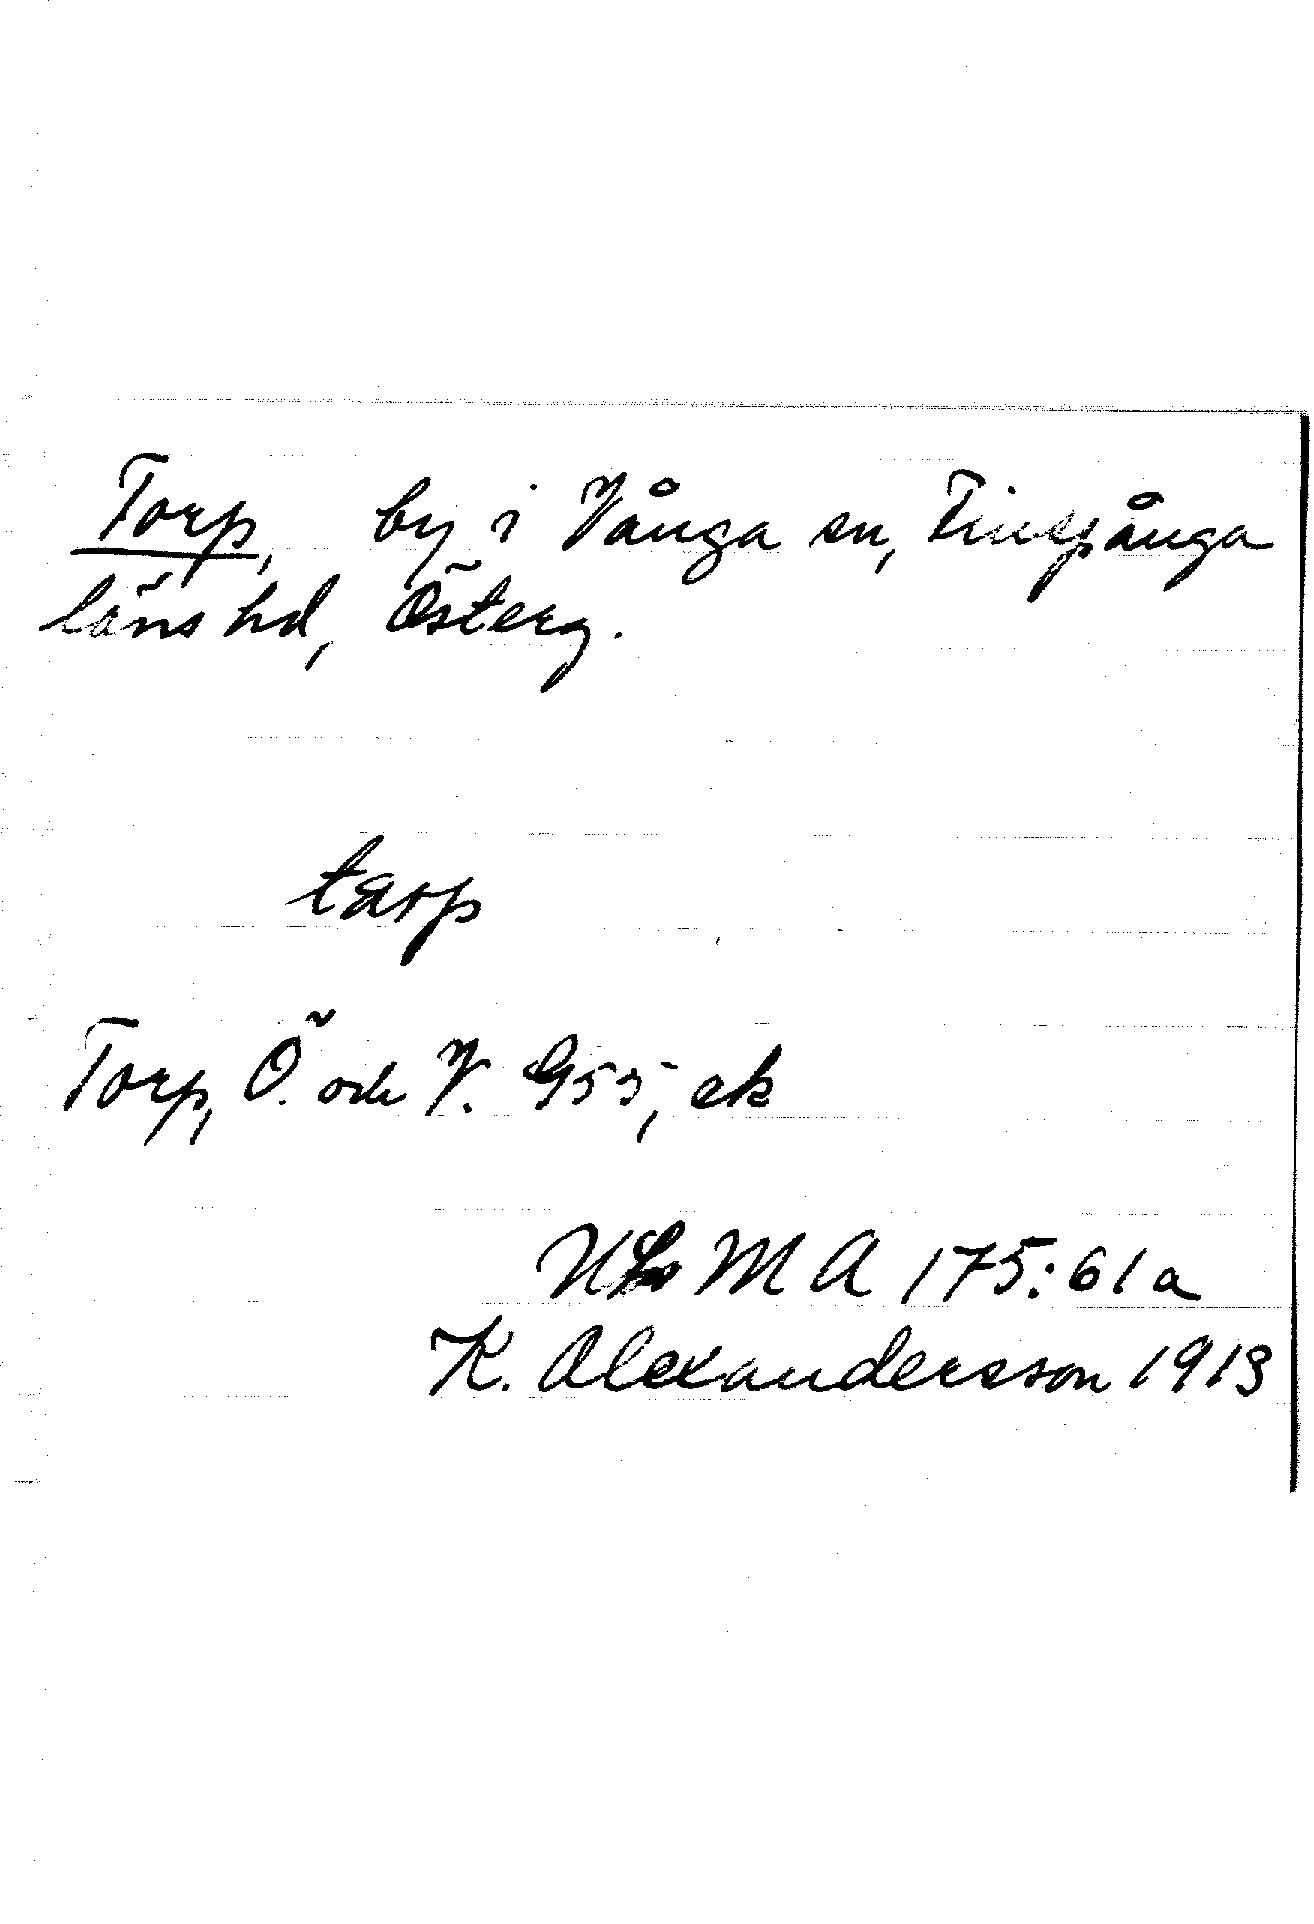 Torp, by i Vånga sn, Finspånga
läns hd, Österg.
tarp
Torp, Ö. och V. G55, ek
ULMA 175:61a
K. Alexandersson 1913